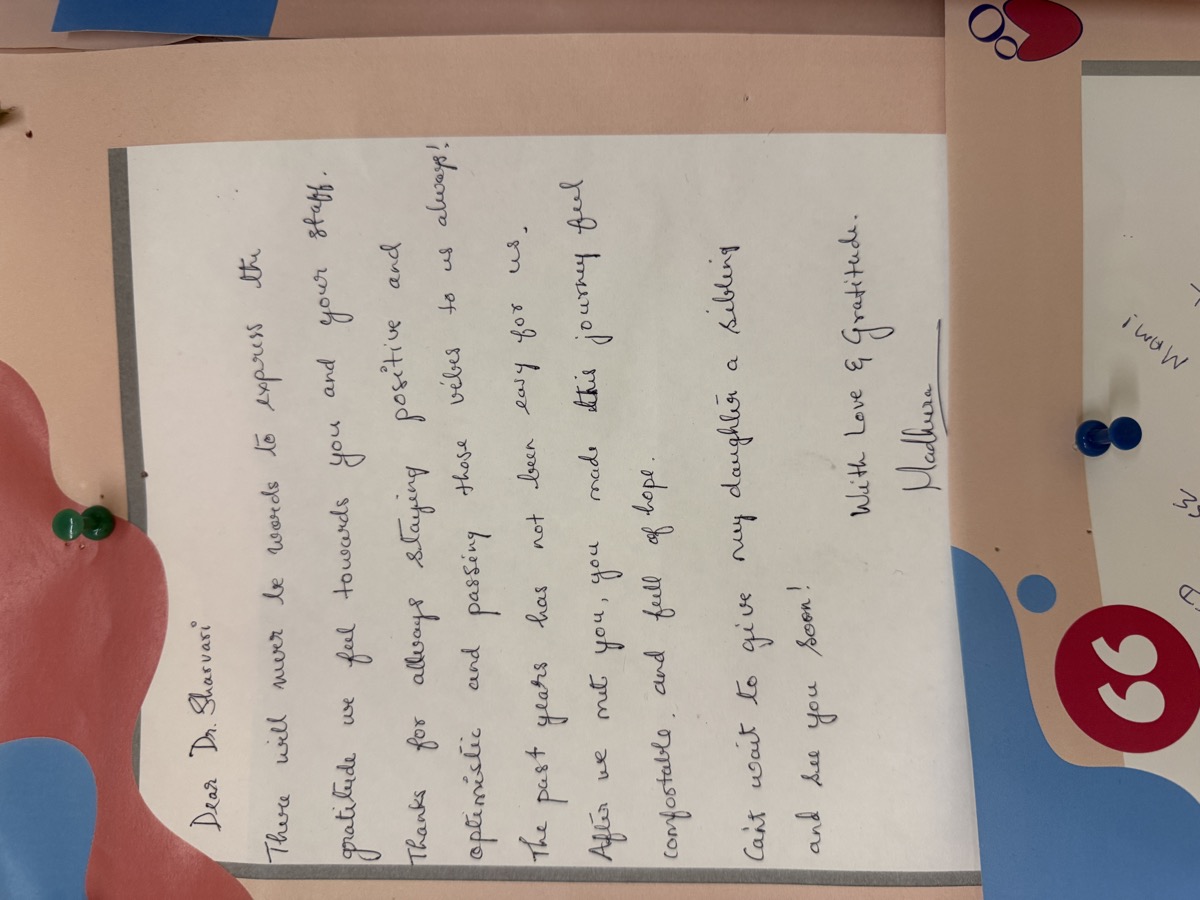 Dear Dr. Sharvari
There will never be words to express the
gratitude we feel towards you and your staff.
Thanks for always staying positive and
optimistic and passing those vibes to us always!
The past years has not been easy for us.
After we met you, you made this journey feel
comfortable and full of hope.
Can't wait to give my daughter a sibling
and see you soon!
With Love & Gratitude.
Madhura
Mam!